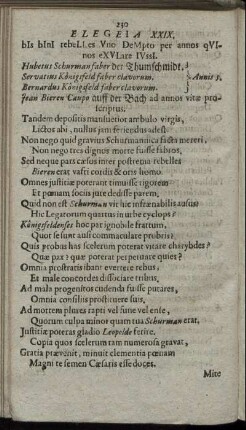 230
ELEGEIA XXIX.
bIs bInI rebeLLes Vno DeMpto per annos qVI-
nos eXVLare IVssI.
Hubetus Schurman faber der Thumschmidt.
Servatius Königsfeld faber clavorum.
Bernardus Königsfeld faber clavorum.
Annis 5.
Jean Bieren Caupo auff der Bach ad annos vitæ pro-
scriptus.
Tandem depositis mansuetior ambulo virgis,
Lictor abi, nullus jam feriendus adest.
Non nego quid gravius Schurmannica facta mereri,
Non nego tres dignos morte fuisse sibi.
Sed neque pars cæsos inter postrema rebelles
Bieren erat vasti cordis & oris homo.
Omnes justitiæ poterant timuisse rigorem
Et pœnam sociis jure dedisse parem.
Quid non est Schurman vir hic infænabilis ausus?
Hic Legatorum quartus in urbe cyclops?
Königsfeldenses hoc par ignobile fratrum,
Quot se sunt ausi commaculare probris?
Quis probus has scelerum poterat vitare charybdes?
Quæ par? quæ poterat perpetuare quies?
Omnia prostratis ibant evertere rebus,
Et male concordes dissociare tribus,
Ad mala progenitos cudenda fuisse putares,
Omnia consiliis prostituere suis,
Ad mortem plures rapti vel sune vel ense,
Quorum culpa minor quam tua Schurman erat.
Justitiæ poteras gladio Leopolde ferire.
Copia quos scelerum tam numerosa gravat,
Gratia prævenit, minuit clementia pœnam
Magni te semen Cæsaris esse doces.
Mite